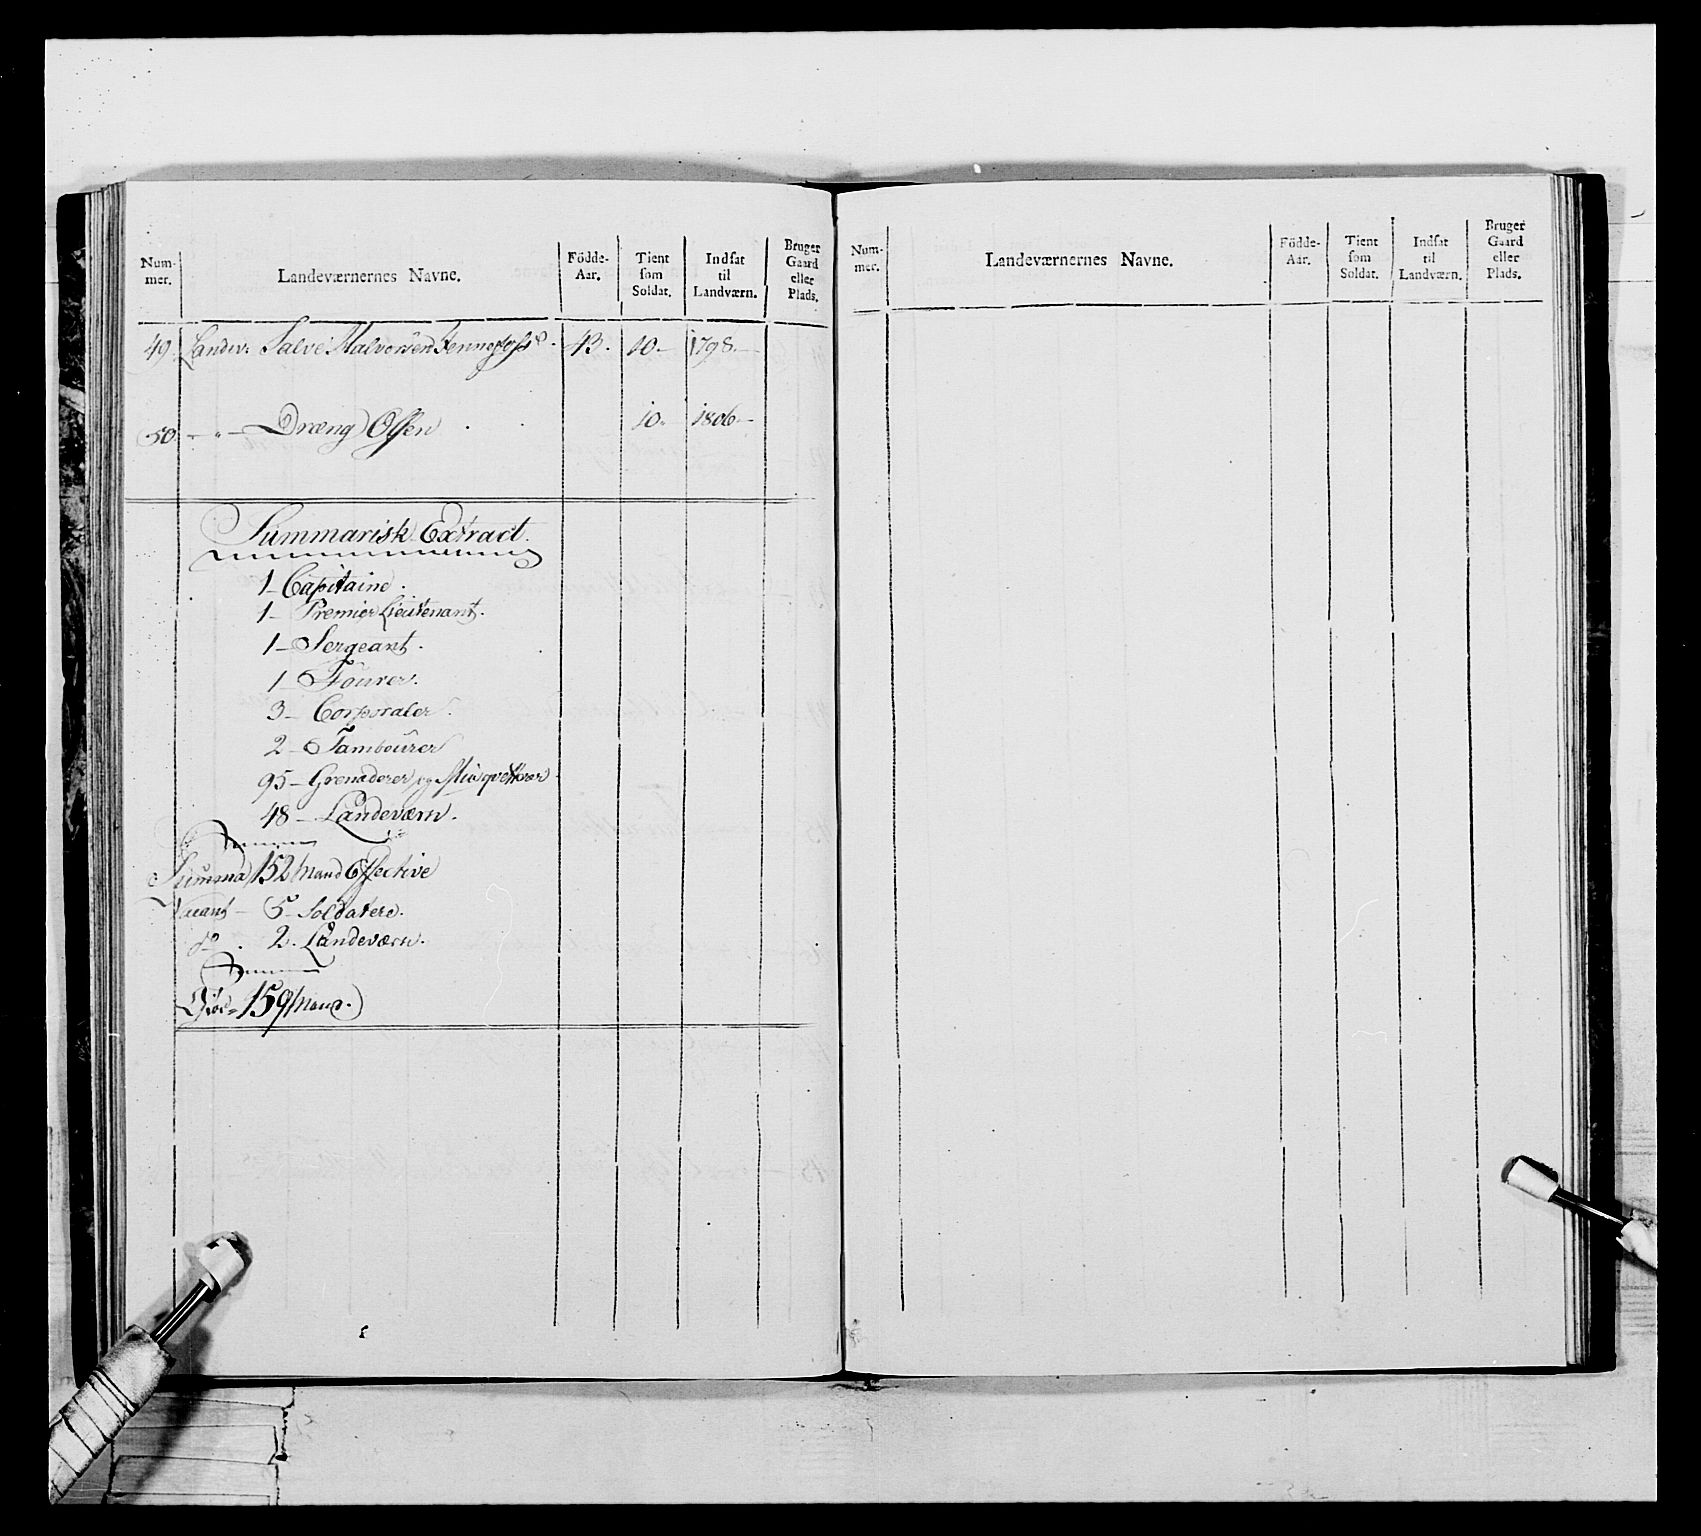 Nummer. Landeværnernes Navne. Födde-Aar. Tient som Soldat. Indsat til Landværn. Bruger Gaard eller Plads.
49. Landev: Salve Halvorsen 43. 10. 1798.
50. - " - Dræng Olsen 10. 1806.
Summarisk Extract.
1 - Capitaine.
1 - Premier Lieutenant.
1 - Sergeant.
1 - Fourer.
3 - Corporaler.
2 - Tambourer
95 - Grenaderer og Musqveterer
48 - Landeværn.
Summa 152 Mand Effective
Vacant - 5 - Soldatere.
do . 2. Landeværn.
159 Mand.
Nummer. Landeværnernes Navne. Födde-Aar. Tient som Soldat. Indsat til Landværn. Bruger Gaard eller Plads.